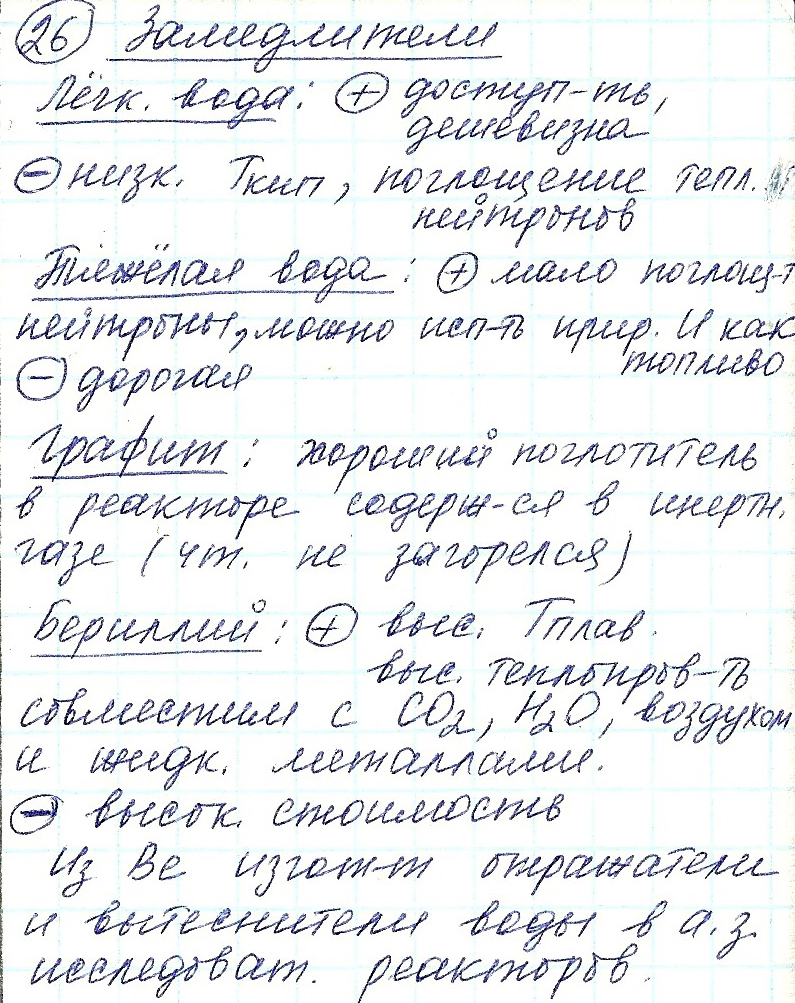 26 Замедлители
Лёгк. вода: + доступ-ть,
дешевизна
- низк. Ткип, поглощение тепл.
нейтронов
Тяжёлая вода: + мало поглощ-т
нейтроны, можно исп-ть прир. U как
топливо
- дорогая
Графит: хороший поглотитель
в реакторе содерж-ся в инертн.
газе (чт. не загорелся)
Бериллий: + выс. Тплав.
выс. теплопров-ть
совместим с CO2, H2O, воздухом
и жидк. металлами.
- высок. стоимость
Из Be изгот-т отражатели
и вытеснители воды в а.з.
исследоват. реакторов.